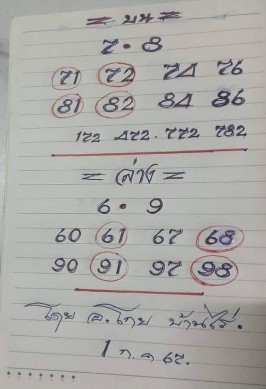 = บน =
7 • 8
71 72 74 76
81 82 84 86
172 472 . 772 782
= ล่าง =
6 • 9
60 61 67 68
90 91 97 98
โดย อ.โทย บ้านไร่.
1 ก.ค 67.